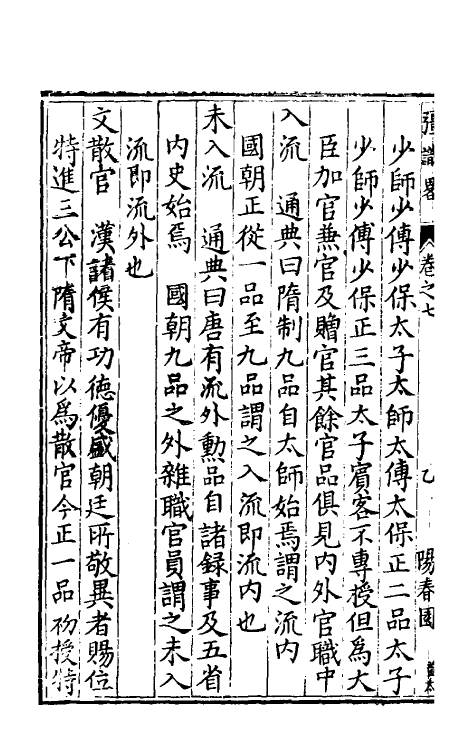 彊識畧 卷之七 乙 陽春園
少師少傅少保太子太師太傅太保正二品太子
少師少傅少保正三品太子賓客不專授但爲大
臣加官兼官及贈官其餘官品俱見内外官職中
入流 通典曰隋制九品自太師始焉謂之流内
國朝正從一品至九品謂之入流即流内也
未入流 通典曰唐有流外勲品自諸録事及五省
内史始焉 國朝九品之外雜職官員謂之未入
流即流外也
文散官 漢諸侯有功徳優盛朝廷所敬異者賜位
特進三公下隋文帝以爲散官今正一品初授特